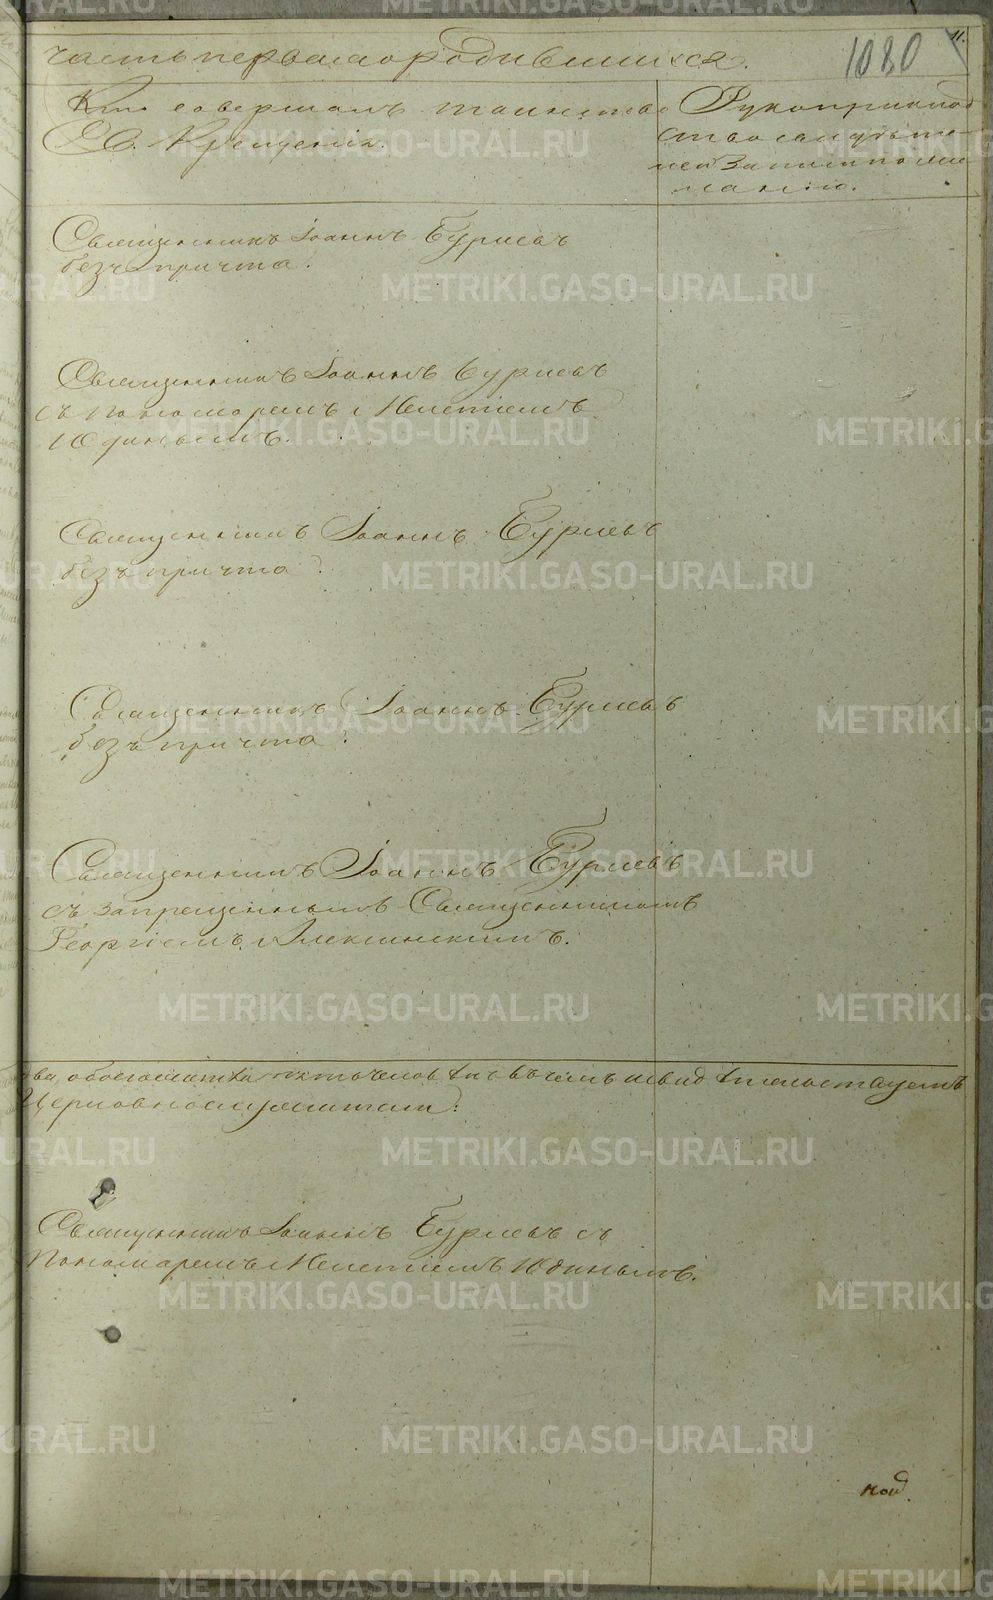 11.
1080
часть первая о родившихся.
Кто совершалъ таинство
Св. Крещенія.
Рукоприклад
ство свидѣте-
лей записи по же
ланію.
Священникъ Іоаннъ Бурлевъ
безъ причта.
Священникъ Іоаннъ Бурлевъ
съ пономаремъ Мелетіемъ
Юдинымъ.
Священникъ Іоаннъ Бурлевъ
безъ причта.
Священникъ Іоаннъ Бурлевъ
безъ причта.
Священникъ Іоаннъ Бурлевъ
съ запрещеннымъ Священникомъ
Георгіемъ Алексинскимъ.
два, обоего въ чемъ и свид
Церковнослужители:
Священникъ Іоаннъ Бурлевъ съ
Пономаремъ Мелетіемъ Юдинымъ.
METRIKI.GASO-URAL.RU